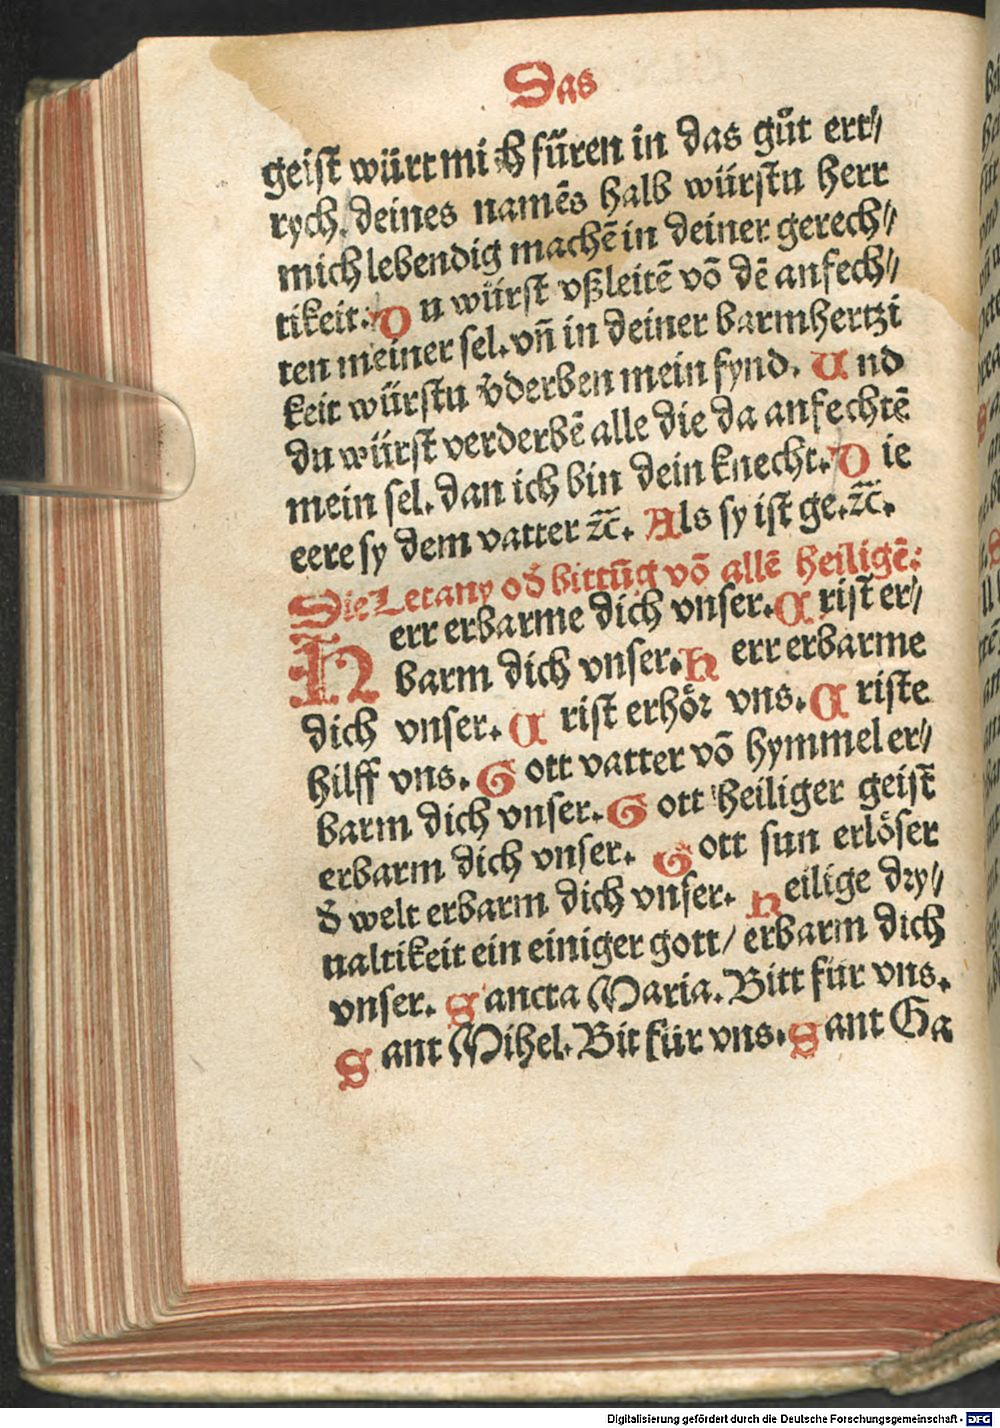 Das
geist würt mich fürẽn in das gůt ert⸗
rych. deines namēs halb würstu herr
mich lebendig machē in deiner gerech⸗
tikeit. Du würst vßleitē vō dē anfech⸗
ten meiner sel. vn̄ in deiner barmhertzi
keit würstu v̄derben mein fynd. Und
du würst verderbē alle die da anfechtē
mein sel. dan ich bin dein knecht. Die
eere sy dem vatter ⁊c̄. Als sy ist ge. ⁊c̄.
Die Letany od̄ bittūg vō allē heiligē:
Herr erbarme dich vnser. Crist er⸗
barm dich vnser. herr erbarme
dich vnser. Crist erhör vns. Criste
hilff vns. Gott vatter vō hymmel er⸗
barm dich vnser. Gott heiliger geist
erbarm dich vnser. Gott sun erlöser
d̄ welt erbarm dich vnser. heilige dry⸗
ualtikeit ein einiger gott/ erbarm dich
vnser. Sancta Maria. Bitt für vns.
Sant Mihel. Bit für vns. Sant Ga
Digitalisierung gefördert durch die Deutsche Forschungsgemeinschaft - DFG